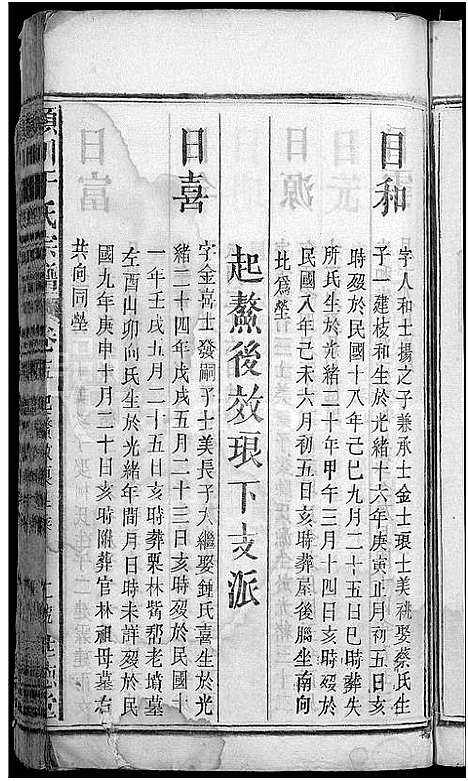 日和
字人和士揚之子兼承士金士琅士美祧娶蔡氏生
子一建枝和生於光緒十六年庚寅正月初五日亥
時歿於民國十八年己巳九月二十五日巳時葬失
所氏生於光緒二十年甲午三月十四日亥時歿於
民國八年己未六月初五日亥時葬屋後腦坐南向
北爲塋
起鰲後效琅下支派
日喜
字金喜士發嗣子士美長子大繼娶鍾氏喜生於光
緒二十四年戊戌五月二十三日亥時歿於民國十
一年壬戌五月二十五日亥時葬栗林觜帮老墳墓
左酉山卯向氏生於光緒年間月日時未詳歿於民
國九年庚申十月二十日亥時附葬官林祖母墓右
共向同塋
氏宗譜 卷五 起鰲效琅